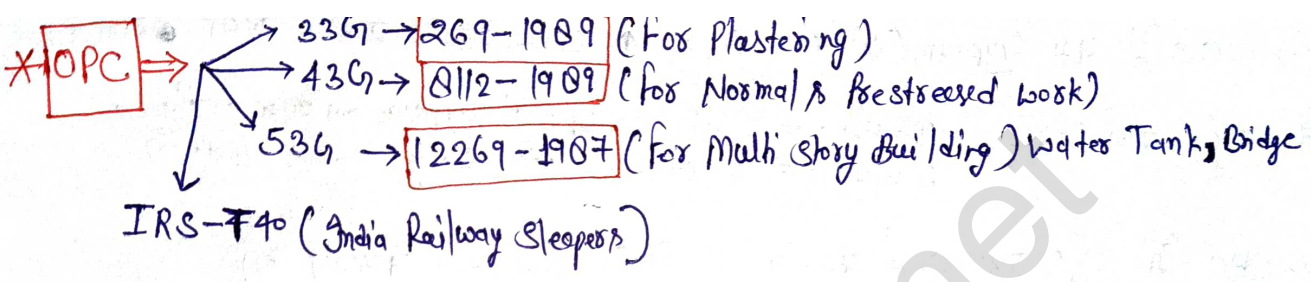 33G → 269-1989 (For Plastering)
*OPC ⇒ 43G → 8112-1989 (for Normal & Prestreesed work)
53G → 12269-1987 (for Multi Story Building) Water Tank, Bridge
IRS-T40 (India Railway Sleepers)
net